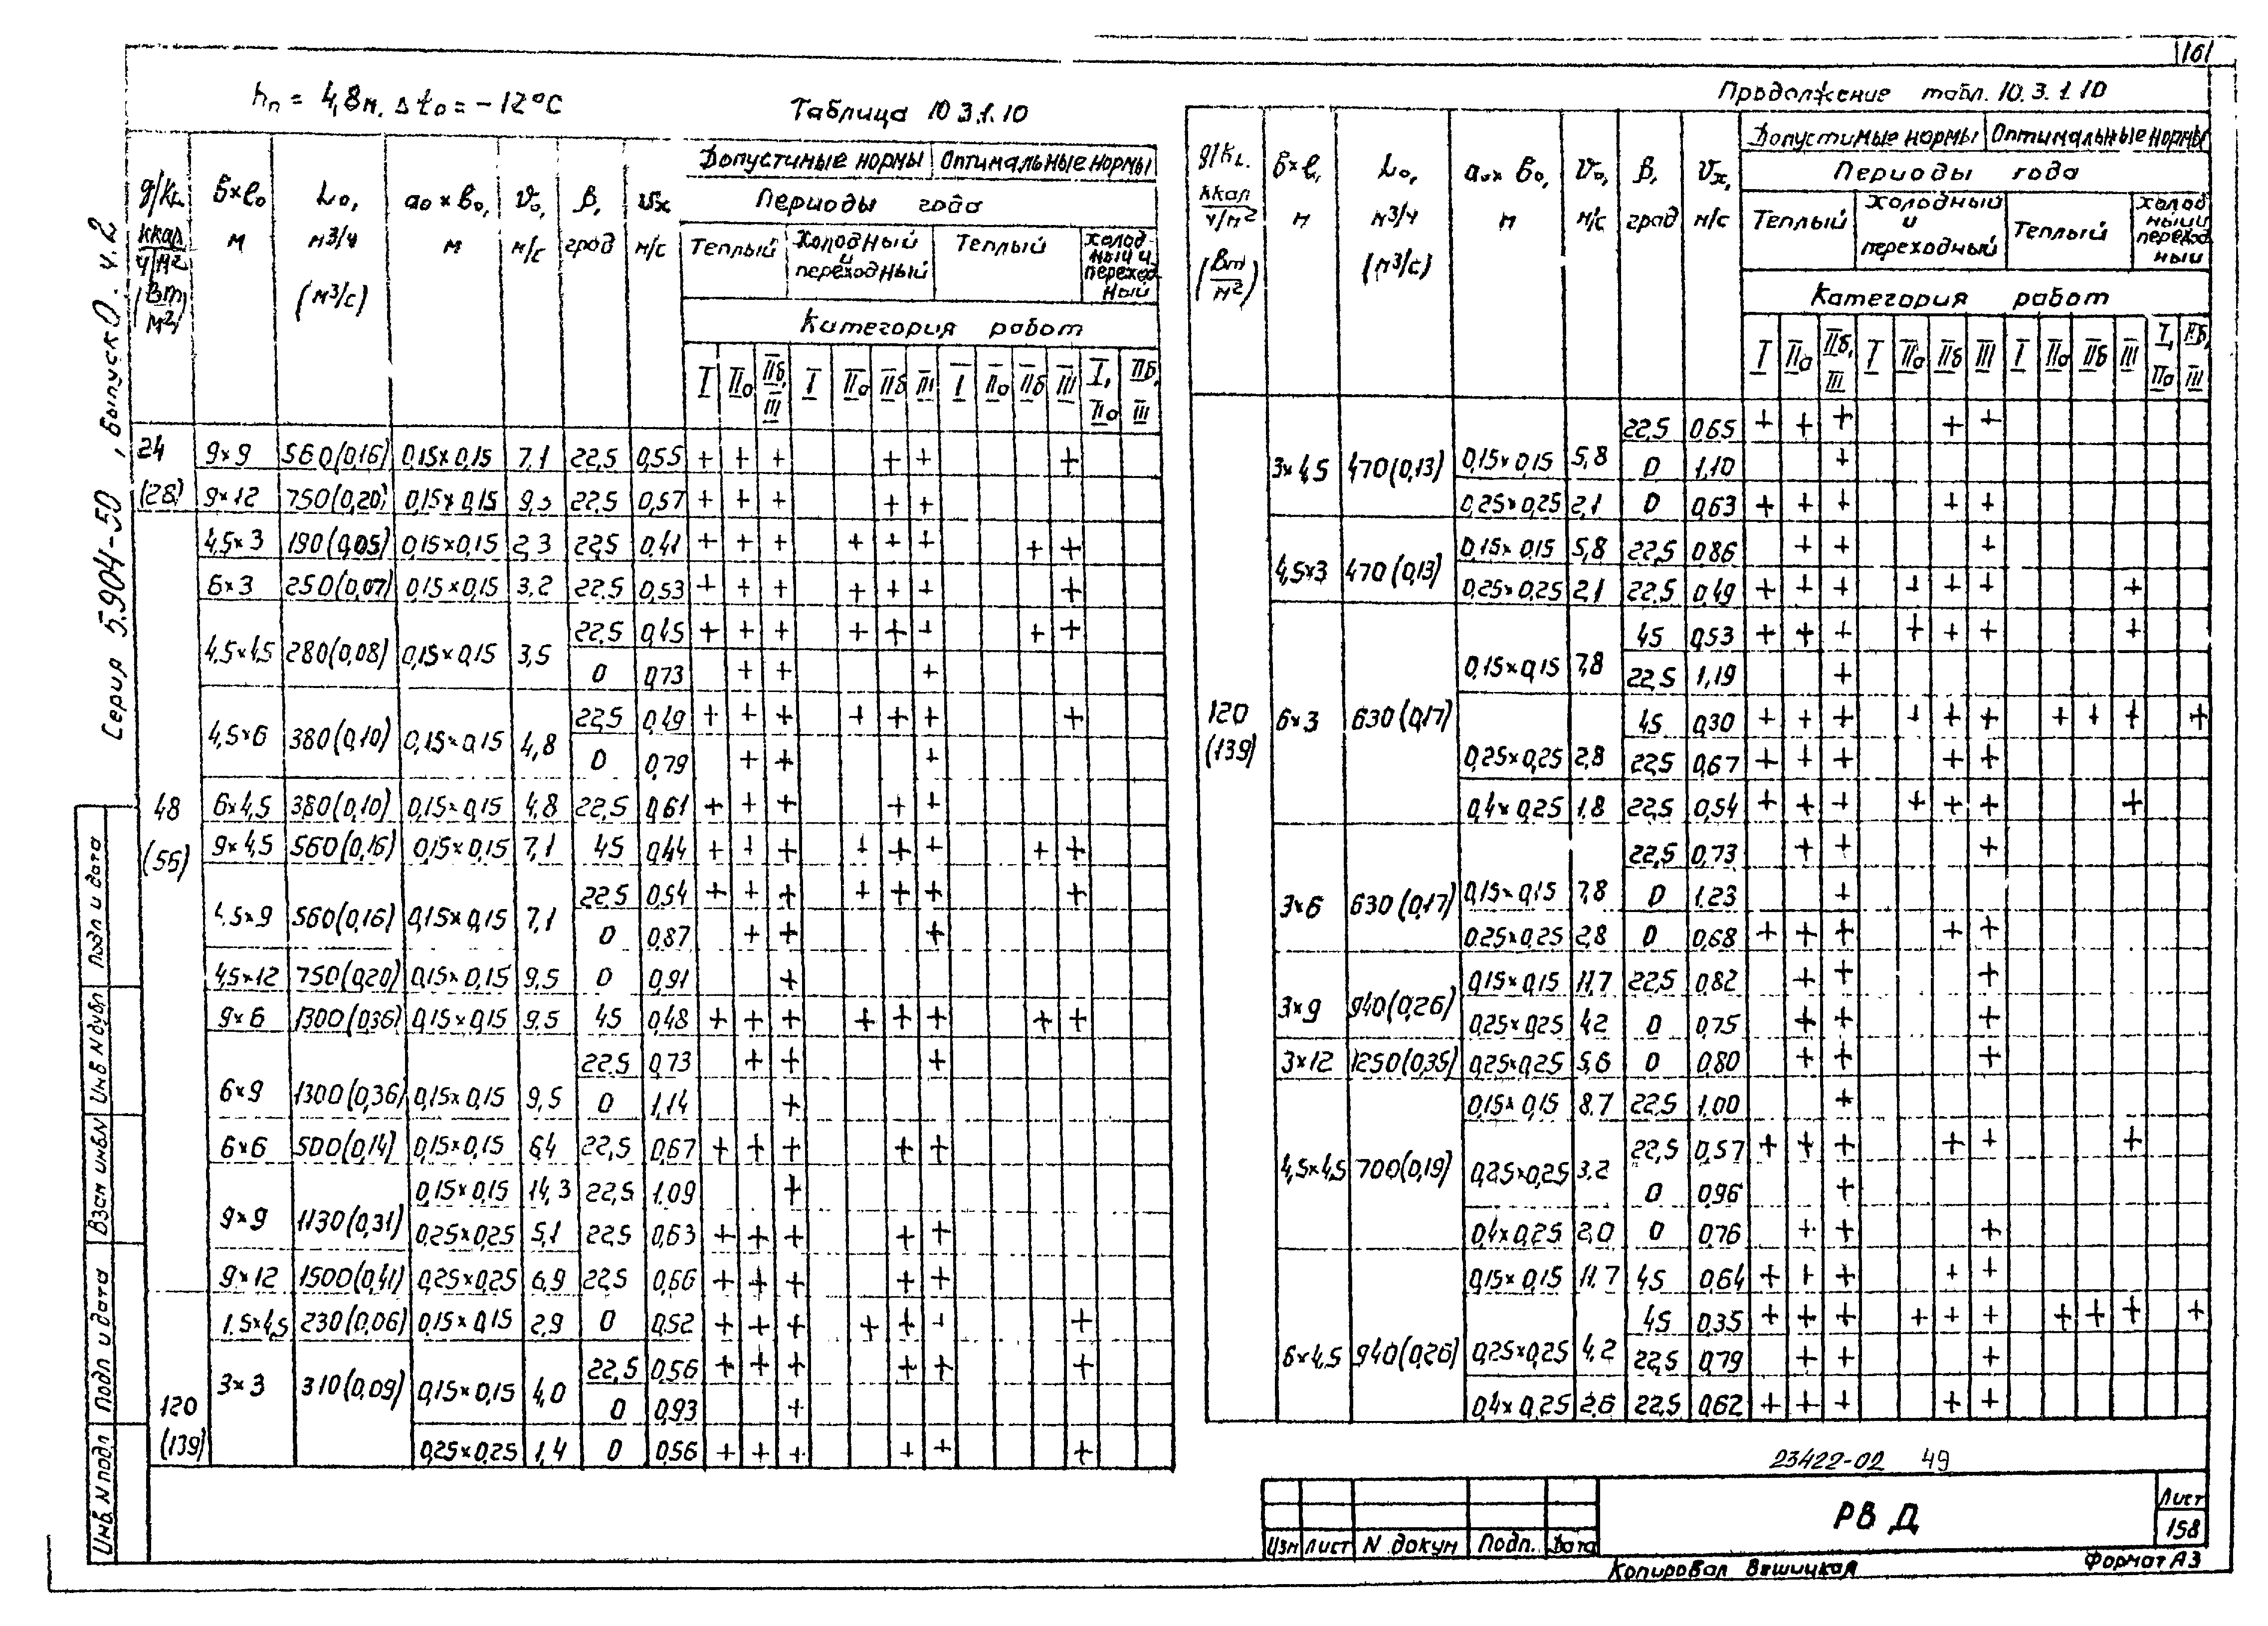 161
hп = 4,8м. Δto = -12°C
Таблица 10.3.1.10
q/kL ккал/ч/м² (Вт/м²) | б×l₀ м | L₀, м³/ч (м³/с) | a₀×b₀, м | v₀, м/с | β, град | vx м/с | Допустимые нормы | Оптимальные нормы
Периоды года
Теплый | Холодный и переходный | Теплый | Холодный и переходный
Категория работ
I | IIа | IIб, III | I | IIа | IIб | III | I | IIа | IIб | III | I, IIа | IIб, III
24 (28) | 9×9 | 560(0,16) | 0,15×0,15 | 7,1 | 22,5 | 0,55 | + + + + + +
9×12 | 750(0,20) | 0,15×0,15 | 9,5 | 22,5 | 0,57 | + + + + +
48 (56) | 4,5×3 | 190(0,05) | 0,15×0,15 | 2,3 | 22,5 | 0,41 | + + + + + + + +
6×3 | 250(0,07) | 0,15×0,15 | 3,2 | 22,5 | 0,53 | + + + + + + +
4,5×4,5 | 280(0,08) | 0,15×0,15 | 3,5 | 22,5 | 0,45 | + + + + + + + +
0 | 0,73 | + + +
4,5×6 | 380(0,10) | 0,15×0,15 | 4,8 | 22,5 | 0,49 | + + + + + + +
0 | 0,79 | + + +
6×4,5 | 380(0,10) | 0,15×0,15 | 4,8 | 22,5 | 0,61 | + + + + +
9×4,5 | 560(0,16) | 0,15×0,15 | 7,1 | 45 | 0,44 | + + + + + + + +
4,5×9 | 560(0,16) | 0,15×0,15 | 7,1 | 22,5 | 0,54 | + + + + + + +
0 | 0,87 | + + +
4,5×12 | 750(0,20) | 0,15×0,15 | 9,5 | 0 | 0,91 | +
9×6 | 1300(0,36) | 0,15×0,15 | 9,5 | 45 | 0,48 | + + + + + + + +
6×9 | 1300(0,36) | 0,15×0,15 | 9,5 | 22,5 | 0,73 | + + +
0 | 1,14 | +
6×6 | 500(0,14) | 0,15×0,15 | 6,4 | 22,5 | 0,67 | + + + + +
9×9 | 1130(0,31) | 0,15×0,15 | 14,3 | 22,5 | 1,09 | +
0,25×0,25 | 5,1 | 22,5 | 0,63 | + + + + +
9×12 | 1500(0,41) | 0,25×0,25 | 6,9 | 22,5 | 0,66 | + + + + +
120 (139) | 1,5×4,5 | 230(0,06) | 0,15×0,15 | 2,9 | 0 | 0,52 | + + + + + + +
3×3 | 310(0,09) | 0,15×0,15 | 4,0 | 22,5 | 0,56 | + + + + + +
0 | 0,93 | +
0,25×0,25 | 1,4 | 0 | 0,56 | + + + + + +
Продолжение табл. 10.3.1.10
q/kL. ккал/ч/м² (Вт/м²) | б×l, м | L₀, м³/ч (м³/с) | a₀×b₀, м | v₀, м/с | β, град | vx, м/с | Допустимые нормы | Оптимальные нормы
Периоды года
Теплый | Холодный и переходный | Теплый | Холодный и переходный
Категория работ
I | IIа | IIб, III | I | IIа | IIб | III | I | IIа | IIб | III | I, IIа | IIб, III
120 (139) | 3×4,5 | 470(0,13) | 0,15×0,15 | 5,8 | 22,5 | 0,65 | + + + + +
0 | 1,10 | +
0,25×0,25 | 2,1 | 0 | 0,63 | + + + + +
4,5×3 | 470(0,13) | 0,15×0,15 | 5,8 | 22,5 | 0,86 | + + +
0,25×0,25 | 2,1 | 22,5 | 0,49 | + + + + + + +
6×3 | 630(0,17) | 0,15×0,15 | 7,8 | 45 | 0,53 | + + + + + + +
22,5 | 1,19 | +
0,25×0,25 | 2,8 | 45 | 0,30 | + + + + + + + + + +
22,5 | 0,67 | + + + + +
0,4×0,25 | 1,8 | 22,5 | 0,54 | + + + + + + +
3×6 | 630(0,17) | 0,15×0,15 | 7,8 | 22,5 | 0,73 | + + +
0 | 1,23 | +
0,25×0,25 | 2,8 | 0 | 0,68 | + + + + +
3×9 | 940(0,26) | 0,15×0,15 | 11,7 | 22,5 | 0,82 | + + +
0,25×0,25 | 4,2 | 0 | 0,75 | + + +
3×12 | 1250(0,35) | 0,25×0,25 | 5,6 | 0 | 0,80 | + + +
4,5×4,5 | 700(0,19) | 0,15×0,15 | 8,7 | 22,5 | 1,00 | +
0,25×0,25 | 3,2 | 22,5 | 0,57 | + + + + + +
0 | 0,96 | +
0,4×0,25 | 2,0 | 0 | 0,76 | + + +
6×4,5 | 940(0,26) | 0,15×0,15 | 11,7 | 45 | 0,64 | + + + + +
0,25×0,25 | 4,2 | 45 | 0,35 | + + + + + + + + + +
22,5 | 0,79 | + + +
0,4×0,25 | 2,6 | 22,5 | 0,62 | + + + + +
Серия 5.904-50 , Выпуск 0. ч.2
Подп и дата
Инв N дубл
Взам инв N
Подп и дата
Инв N подл
23422-02 49
Изм Лист N докум Подп. Дата
РВ Д
Лист
158
Копировал Вешицкая
Формат А3